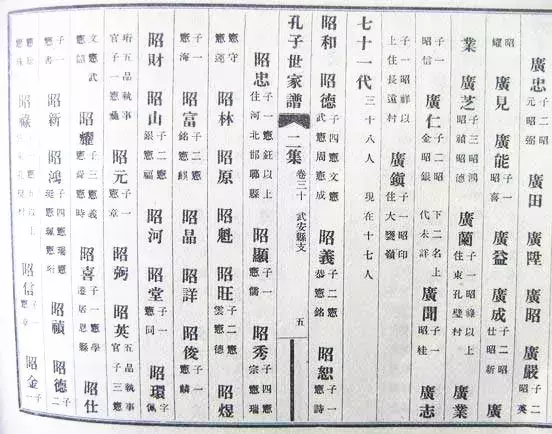 廣忠 元 昭弼 廣田 廣陞 廣昭 廣嚴 子二 昭英
昭耀 廣見 廣能 子一 昭喜 廣益 廣成 子二 昭新 昭仕 廣
業 廣芝 子三 昭鴻 昭禧 昭德 廣蘭 子一 昭祿 以上住東孔壁村 廣業
子一 昭信 廣仁 子二 昭金 昭銀 下二名上代未詳 廣聞 子一 昭桂 廣志
子一 昭祥 以上住長遠村 廣鎮 子一 昭印 住大嶺
七十一代 三十八人 現在十七人
昭和 昭德 子四 憲文 憲武 憲周 憲成 昭義 子二 憲恭 憲銘 昭恕 子一 憲詩
孔子世家譜 二集 卷三十 武安縣支 五
昭忠 子一 憲鈺 以上住河北邯鄲縣 昭顯 子一 憲儒 昭秀 子四 憲宗 憲瑞
憲守 憲蓮 昭林 昭原 昭魁 昭旺 子二 憲雲 憲德 昭煜
子一 憲海 昭富 子二 憲銘 憲麒 昭晶 昭詳 昭俊 子一 憲麟
昭財 昭山 子二 憲銀 憲福 昭河 昭堂 子一 憲同 昭環 字佩
珩五品執事官 子一 憲 昭元 子一 憲章 昭弼 昭英 五品執事官 子三 憲
文 憲武 憲韶 昭耀 子三 憲義 憲 憲時 昭喜 子一 憲學 遷居恩縣 昭仕
子一 憲書 昭新 昭鴻 子四 憲瑞 憲珽 憲珮 憲珩 昭禎 昭德 子二
憲 憲珠 昭祿 昭信 子一 憲章 昭金 子一